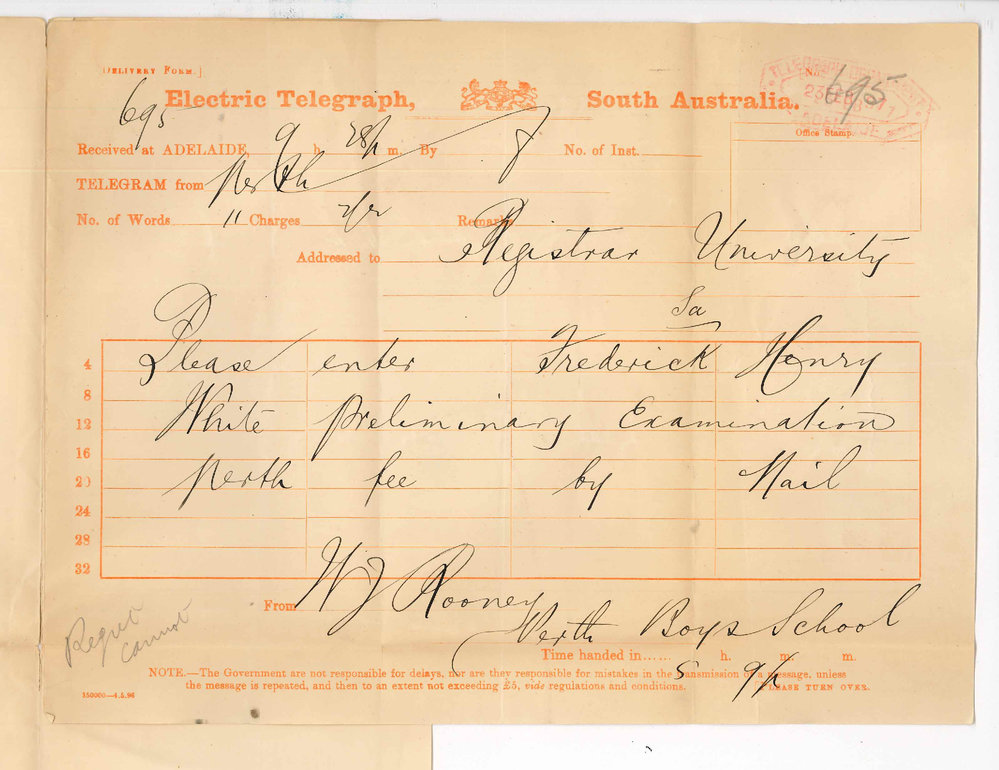 [DELIVERY FORM.]
695
Electric Telegraph, South Australia.
No. 695
TELEGRAPH
ADELAIDE
Office Stamp.
Received at ADELAIDE, 9 h. m. By No. of Inst.
TELEGRAM from Perth
No. of Words 11 Charges Remarks
Addressed to Registrar University
Sa
4 Please enter Frederick Henry
8
12 White preliminary Examination
16
20 Perth fee by Mail
24
28
32
From W J Rooney
Perth Boys School
Regret
cannot
Time handed in...... h. m. m.
NOTE.—The Government are not responsible for delays, nor are they responsible for mistakes in the transmission of a message, unless
the message is repeated, and then to an extent not exceeding £5, vide regulations and conditions. PLEASE TURN OVER.
150000—4.5.96